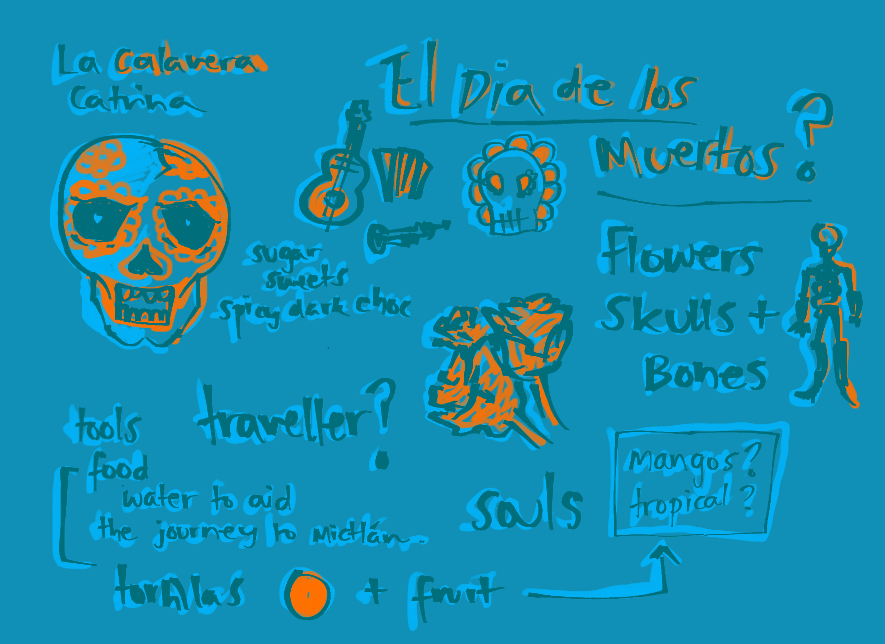 La Calavera
Catrina
El Dia de los
Muertos?
sugar
sweets
spicy dark choc
Flowers
Skulls +
Bones
traveller?
tools
food
water to aid
the journey to Mictlán..
souls
mangos?
tropical?
tortillas + fruit